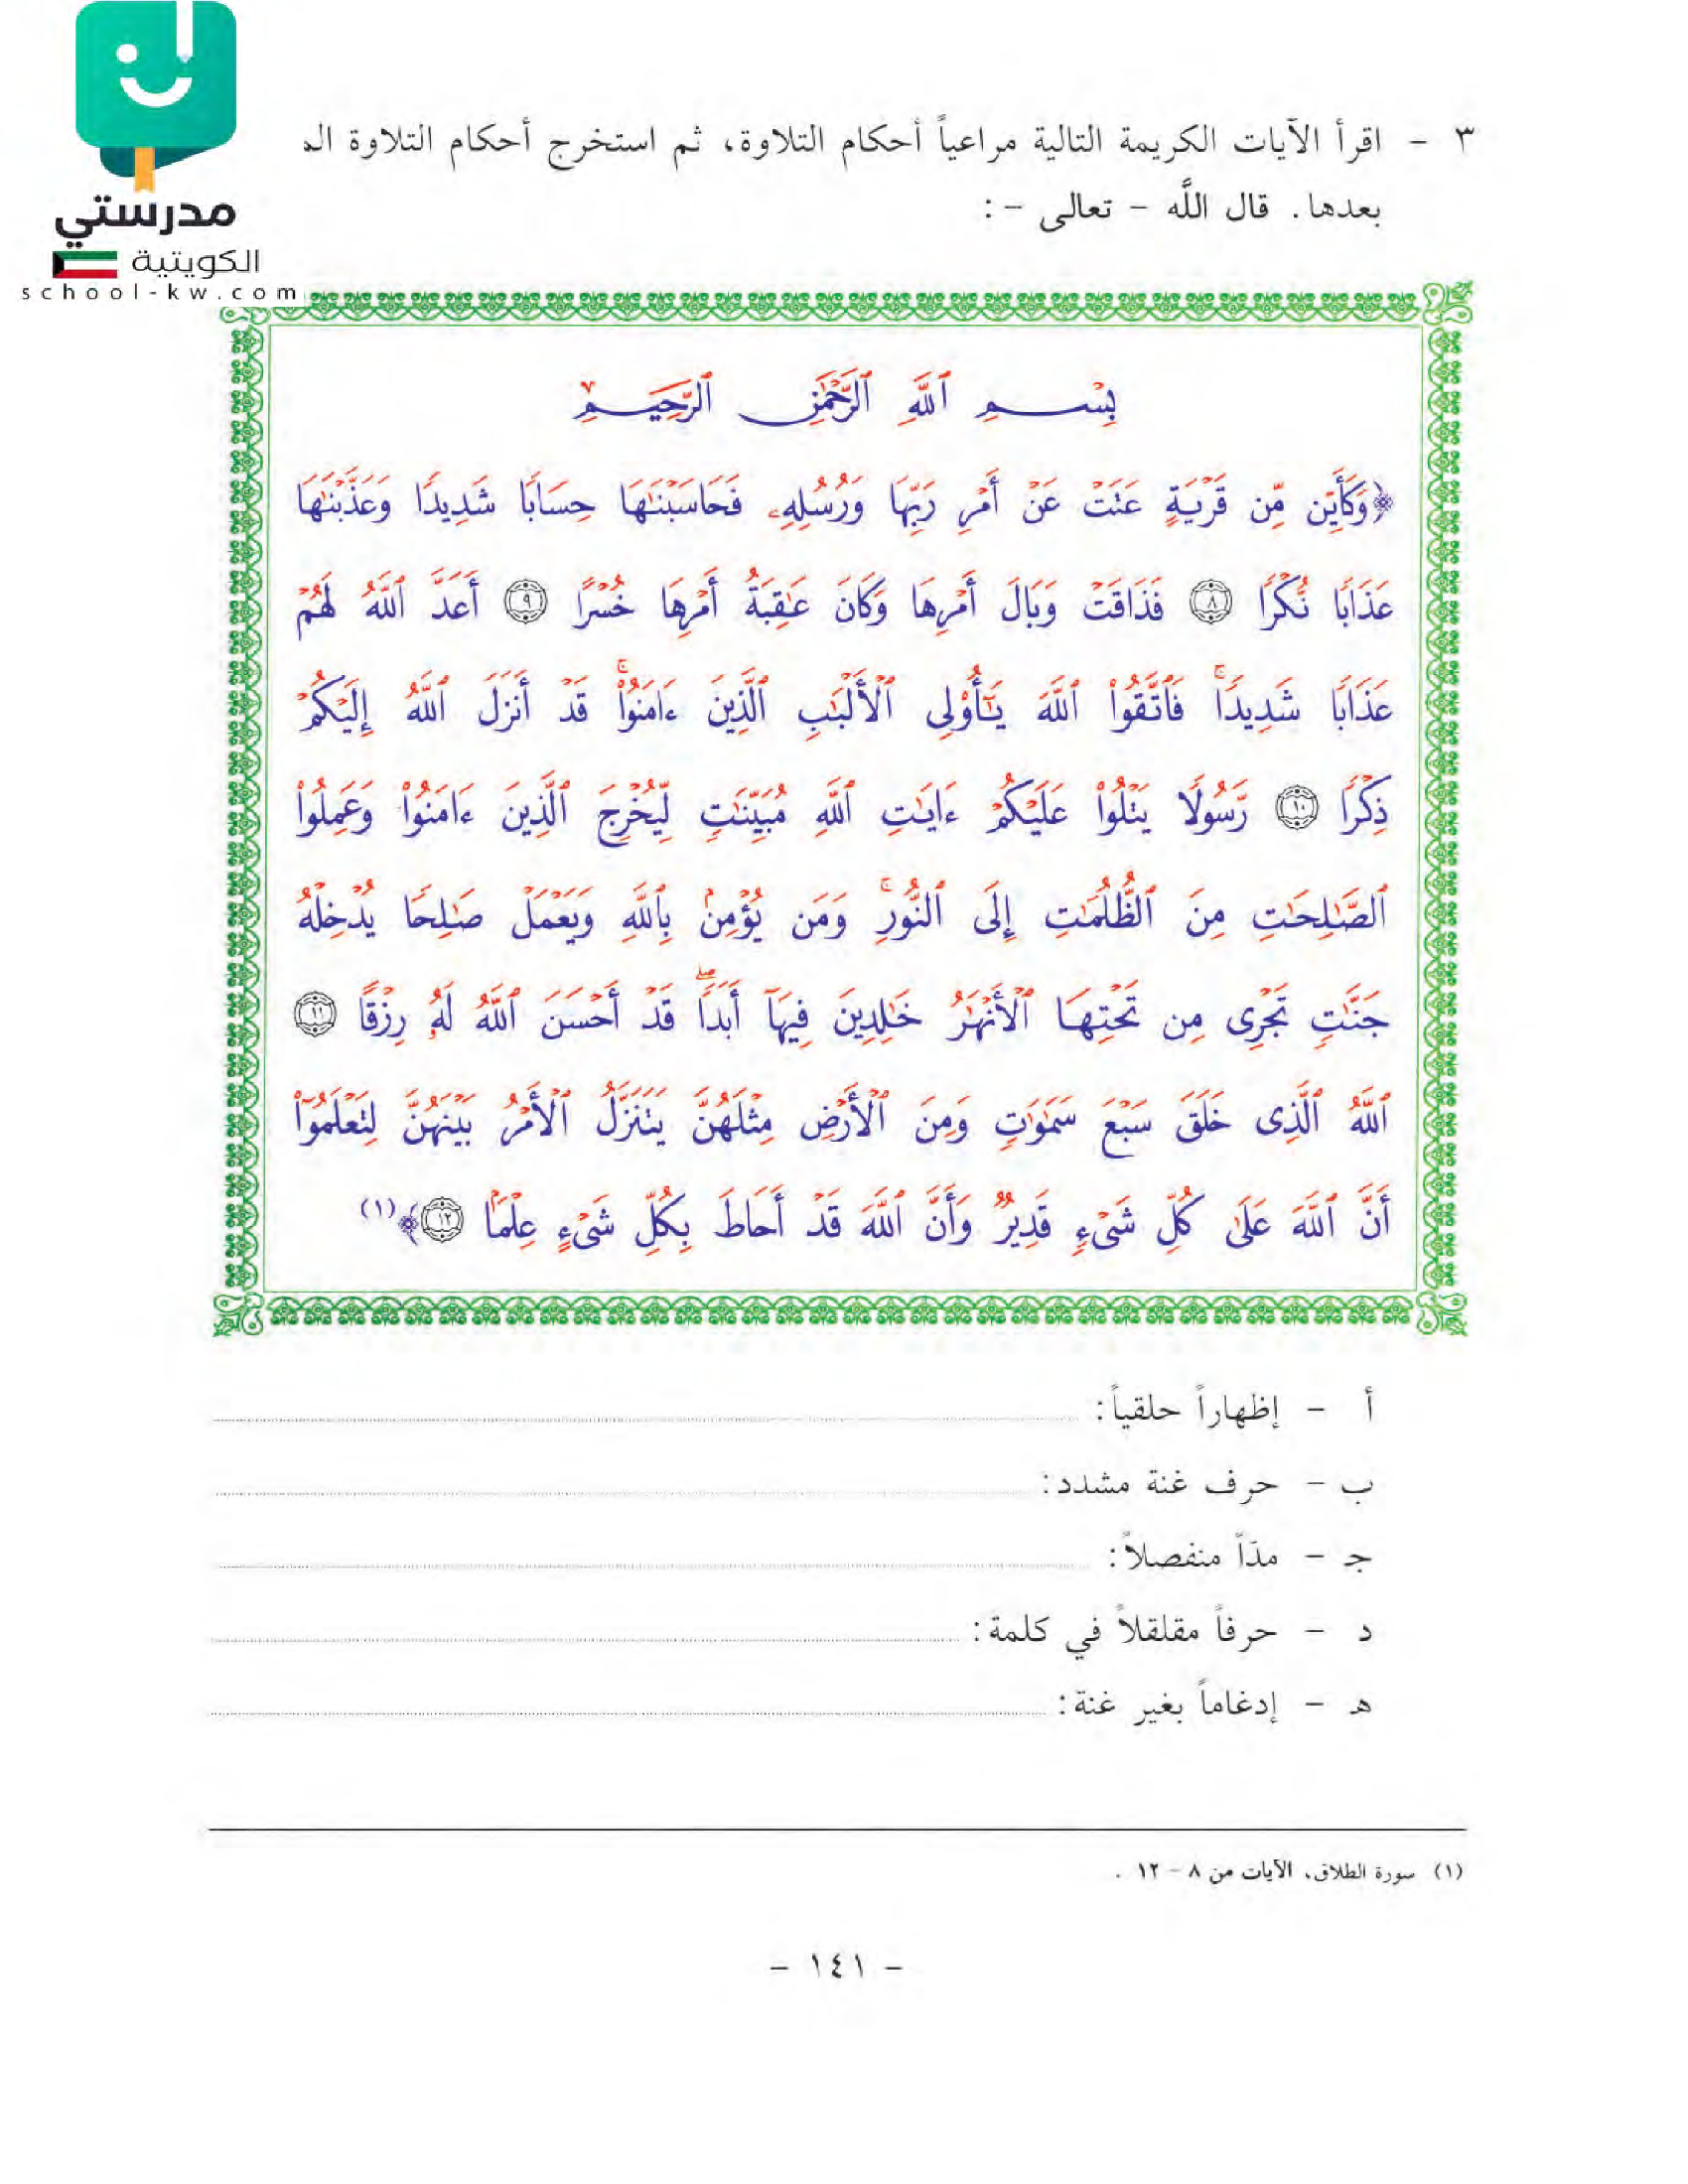 مدرستي
الكويتية
school-kw.com
٣ - اقرأ الآيات الكريمة التالية مراعياً أحكام التلاوة، ثم استخرج أحكام التلاوة
بعدها. قال اللَّه - تعالى - :
بِسْمِ ٱللَّهِ ٱلرَّحْمَٰنِ ٱلرَّحِيمِ
﴿وَكَأَيِّن مِّن قَرْيَةٍ عَتَتْ عَنْ أَمْرِ رَبِّهَا وَرُسُلِهِۦ فَحَاسَبْنَٰهَا حِسَابًا شَدِيدًا وَعَذَّبْنَٰهَا
عَذَابًا نُّكْرًا ٨ فَذَاقَتْ وَبَالَ أَمْرِهَا وَكَانَ عَٰقِبَةُ أَمْرِهَا خُسْرًا ٩ أَعَدَّ ٱللَّهُ لَهُمْ
عَذَابًا شَدِيدًا ۖ فَٱتَّقُوا۟ ٱللَّهَ يَٰٓأُو۟لِى ٱلْأَلْبَٰبِ ٱلَّذِينَ ءَامَنُوا۟ ۚ قَدْ أَنزَلَ ٱللَّهُ إِلَيْكُمْ
ذِكْرًا ١٠ رَّسُولًا يَتْلُوا۟ عَلَيْكُمْ ءَايَٰتِ ٱللَّهِ مُبَيِّنَٰتٍ لِّيُخْرِجَ ٱلَّذِينَ ءَامَنُوا۟ وَعَمِلُوا۟
ٱلصَّٰلِحَٰتِ مِنَ ٱلظُّلُمَٰتِ إِلَى ٱلنُّورِ ۚ وَمَن يُؤْمِنۢ بِٱللَّهِ وَيَعْمَلْ صَٰلِحًا يُدْخِلْهُ
جَنَّٰتٍ تَجْرِى مِن تَحْتِهَا ٱلْأَنْهَٰرُ خَٰلِدِينَ فِيهَآ أَبَدًا ۖ قَدْ أَحْسَنَ ٱللَّهُ لَهُۥ رِزْقًا ١١
ٱللَّهُ ٱلَّذِى خَلَقَ سَبْعَ سَمَٰوَٰتٍ وَمِنَ ٱلْأَرْضِ مِثْلَهُنَّ يَتَنَزَّلُ ٱلْأَمْرُ بَيْنَهُنَّ لِتَعْلَمُوٓا۟
أَنَّ ٱللَّهَ عَلَىٰ كُلِّ شَىْءٍ قَدِيرٌ وَأَنَّ ٱللَّهَ قَدْ أَحَاطَ بِكُلِّ شَىْءٍ عِلْمًۢا ١٢﴾ (١)
أ - إظهاراً حلقياً:
ب - حرف غنة مشدد:
جـ - مدّاً منفصلاً:
د - حرفاً مقلقلاً في كلمة:
هـ - إدغاماً بغير غنة:
(١) سورة الطلاق، الآيات من ٨ - ١٢ .
- ١٤١ -